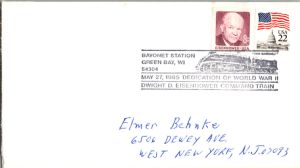 EISENHOWER·USA
USA
22
BAYONET STATION
GREEN BAY, WI
54304
MAY 27, 1985 DEDICATION OF WORLD WAR II
DWIGHT D. EISENHOWER COMMAND TRAIN
Elmer Behnke
6506 DEWEY AVE
WEST NEW YORK, N.J. 07093